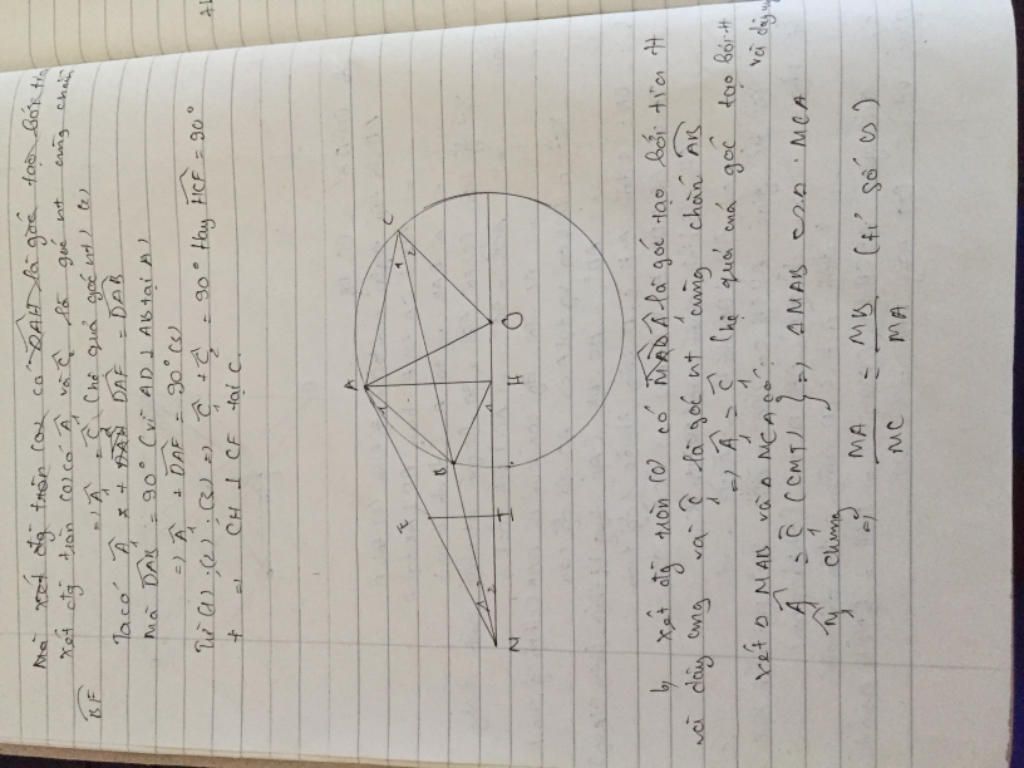 Mà xét đg tròn (O) có DAH là góc tạo bởi tia
xét đg tròn (O) có Â₁ và Ĉ₂ là góc nt cùng chắn
BF => Â₁ = Ĉ₂ (hệ quả góc nt) (2)
Ta có Â₁ + DAF = DAB
Mà DAB = 90° (vì AD ⊥ AB tại A)
=> Â₁ + DAF = 90° (3)
Từ (1).(2).(3) => Ĉ₁ + Ĉ₂ = 90° Hay HCF = 90°
+ => CH ⊥ CF tại C
A
C
1
2
1
B
E
1
O
H
I
1
2
N
b, xét đg tròn (O) có MAB là góc tạo bởi tia tt
và dây cung và Ĉ₁ là góc nt cùng chắn AB
=> Â₁ = Ĉ₁ (hệ quả của góc tạo bởi tt
và dây
xét Δ MAB và Δ MCA có
Â₁ = Ĉ₁ (CMT) } => Δ MAB ∽ Δ MCA
chung
=> MA/MC = MB/MA (tỉ số)